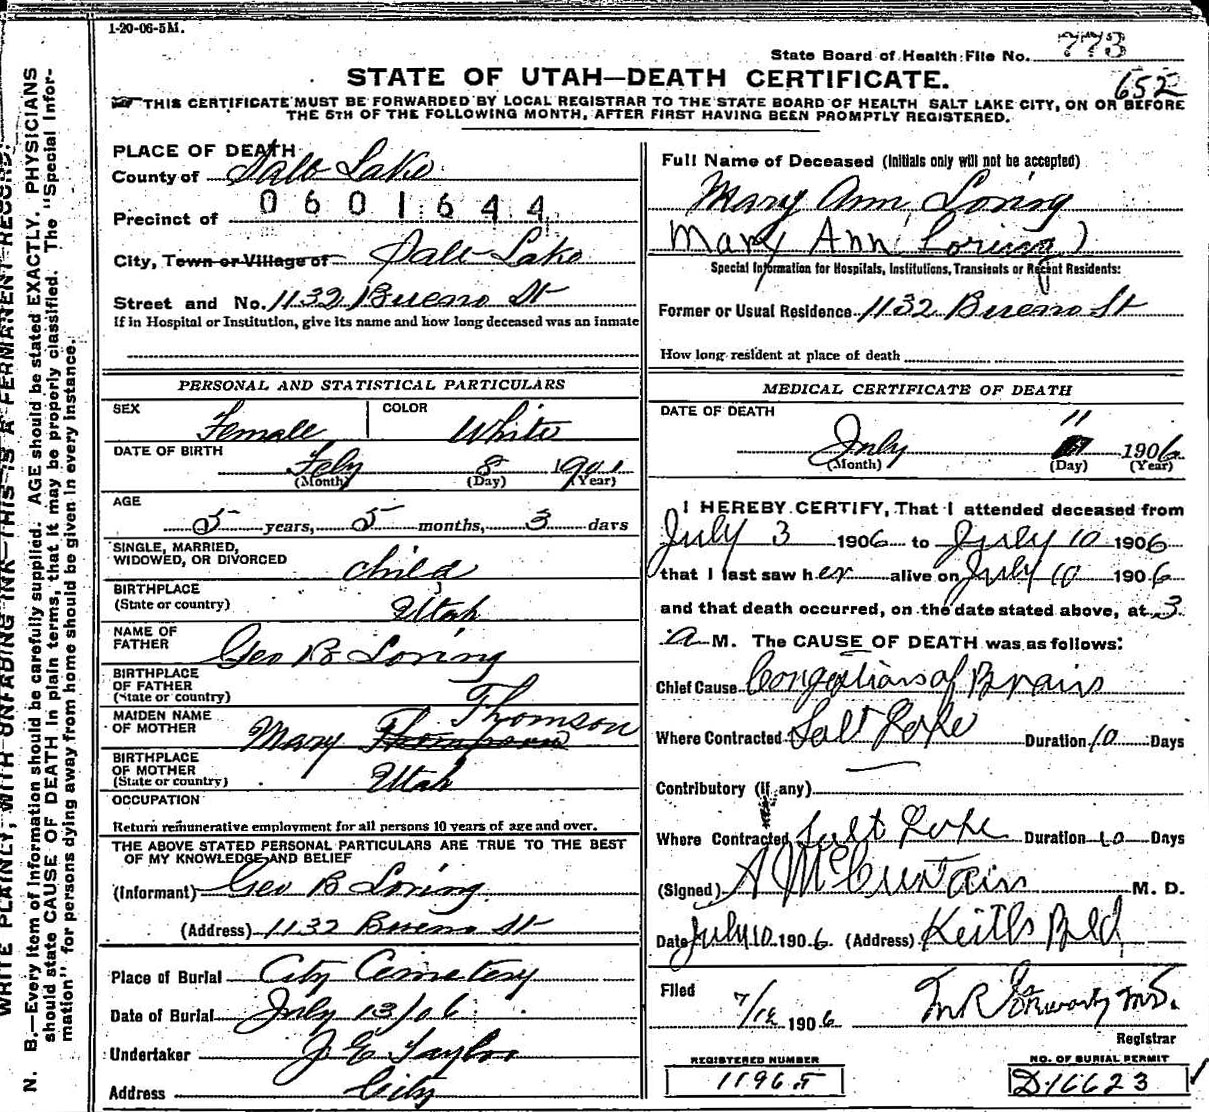 1-20-06-5M.
State Board of Health File No. 773
652
STATE OF UTAH—DEATH CERTIFICATE.
THIS CERTIFICATE MUST BE FORWARDED BY LOCAL REGISTRAR TO THE STATE BOARD OF HEALTH SALT LAKE CITY, ON OR BEFORE
THE 5TH OF THE FOLLOWING MONTH, AFTER FIRST HAVING BEEN PROMPTLY REGISTERED.
PLACE OF DEATH
County of Salt Lake
Precinct of 0601644
City, Town or Village of Salt Lake
Street and No. 1132 Bueno St
If in Hospital or Institution, give its name and how long deceased was an inmate
PERSONAL AND STATISTICAL PARTICULARS
SEX Female COLOR White
DATE OF BIRTH Feby 8 1901
(Month) (Day) (Year)
AGE 5 years, 5 months, 3 days
SINGLE, MARRIED,
WIDOWED, OR DIVORCED child
BIRTHPLACE
(State or country) Utah
NAME OF
FATHER Geo B Loring
BIRTHPLACE
OF FATHER
(State or country)
MAIDEN NAME
OF MOTHER Mary Thompson Thomson
BIRTHPLACE
OF MOTHER
(State or country) Utah
OCCUPATION
Return remunerative employment for all persons 10 years of age and over.
THE ABOVE STATED PERSONAL PARTICULARS ARE TRUE TO THE BEST
OF MY KNOWLEDGE AND BELIEF
(Informant) Geo B Loring
(Address) 1132 Bueno St
Place of Burial City Cemetery
Date of Burial July 13/06
Undertaker J E Taylor
Address City
Full Name of Deceased (Initials only will not be accepted)
Mary Ann Loring
Mary Ann Loring)
Special Information for Hospitals, Institutions, Transients or Recent Residents:
Former or Usual Residence 1132 Bueno St
How long resident at place of death
MEDICAL CERTIFICATE OF DEATH
DATE OF DEATH
July 11 1906
(Month) (Day) (Year)
I HEREBY CERTIFY, That I attended deceased from
July 3 1906 to July 10 1906
that I last saw her alive on July 10 1906
and that death occurred, on the date stated above, at 3
a M. The CAUSE OF DEATH was as follows:
Chief Cause Congestion of Brain
Where Contracted Salt Lake Duration 10 Days
Contributory (if any)
Where Contracted Salt Lake Duration 10 Days
(Signed) A McCurtain M. D.
Date July 10 1906 (Address) Keith Bld
Filed 7/12 1906 M.D.
Registrar
REGISTERED NUMBER
11965
NO. OF BURIAL PERMIT
D16623
WRITE PLAINLY, WITH UNFADING INK—THIS IS A PERMANENT RECORD.
N. B.—Every item of information should be carefully supplied. AGE should be stated EXACTLY. PHYSICIANS
should state CAUSE OF DEATH in plain terms, that it may be properly classified. The "Special Infor-
mation" for persons dying away from home should be given in every instance.